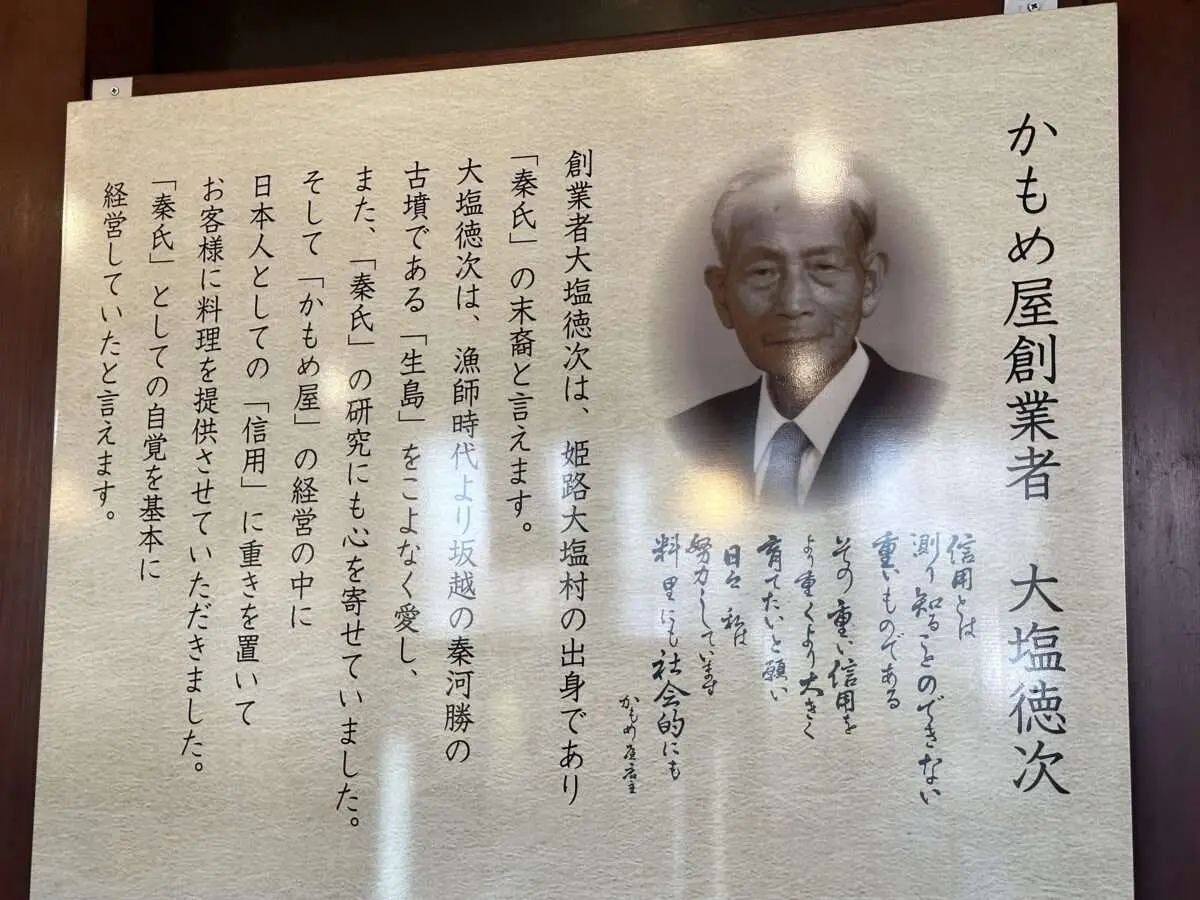 かもめ屋創業者　大塩徳次
信用とは
測り知ることのできない
重いものである
その重い信用を
より重くより大きく
育てたいと願い
日々 私は
努力しています
料理にも社会的にも
かもめ屋店主
創業者大塩徳次は、姫路大塩村の出身であり
「秦氏」の末裔と言えます。
大塩徳次は、漁師時代より坂越の秦河勝の
古墳である「生島」をこよなく愛し、
また、「秦氏」の研究にも心を寄せていました。
そして「かもめ屋」の経営の中に
日本人としての「信用」に重きを置いて
お客様に料理を提供させていただきました。
「秦氏」としての自覚を基本に
経営していたと言えます。